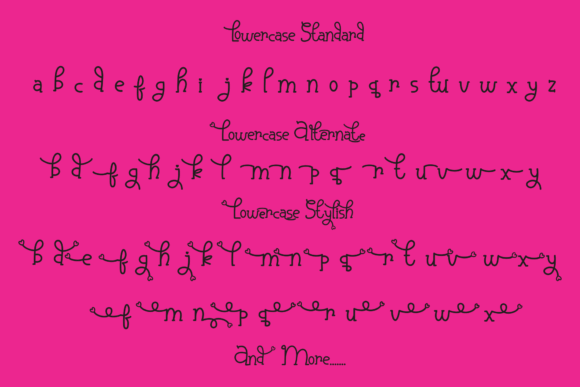 Lowercase Standard
a b c d e f g h i j k l m n o p q r s t u v w x y z
Lowercase Alternate
b d f g h j k l m n p q r t u v w x y
Lowercase Stylish
b d e f g h j k l m n p q r t u v w x y
e f m n p q e r u e v e w e x e
And More.......